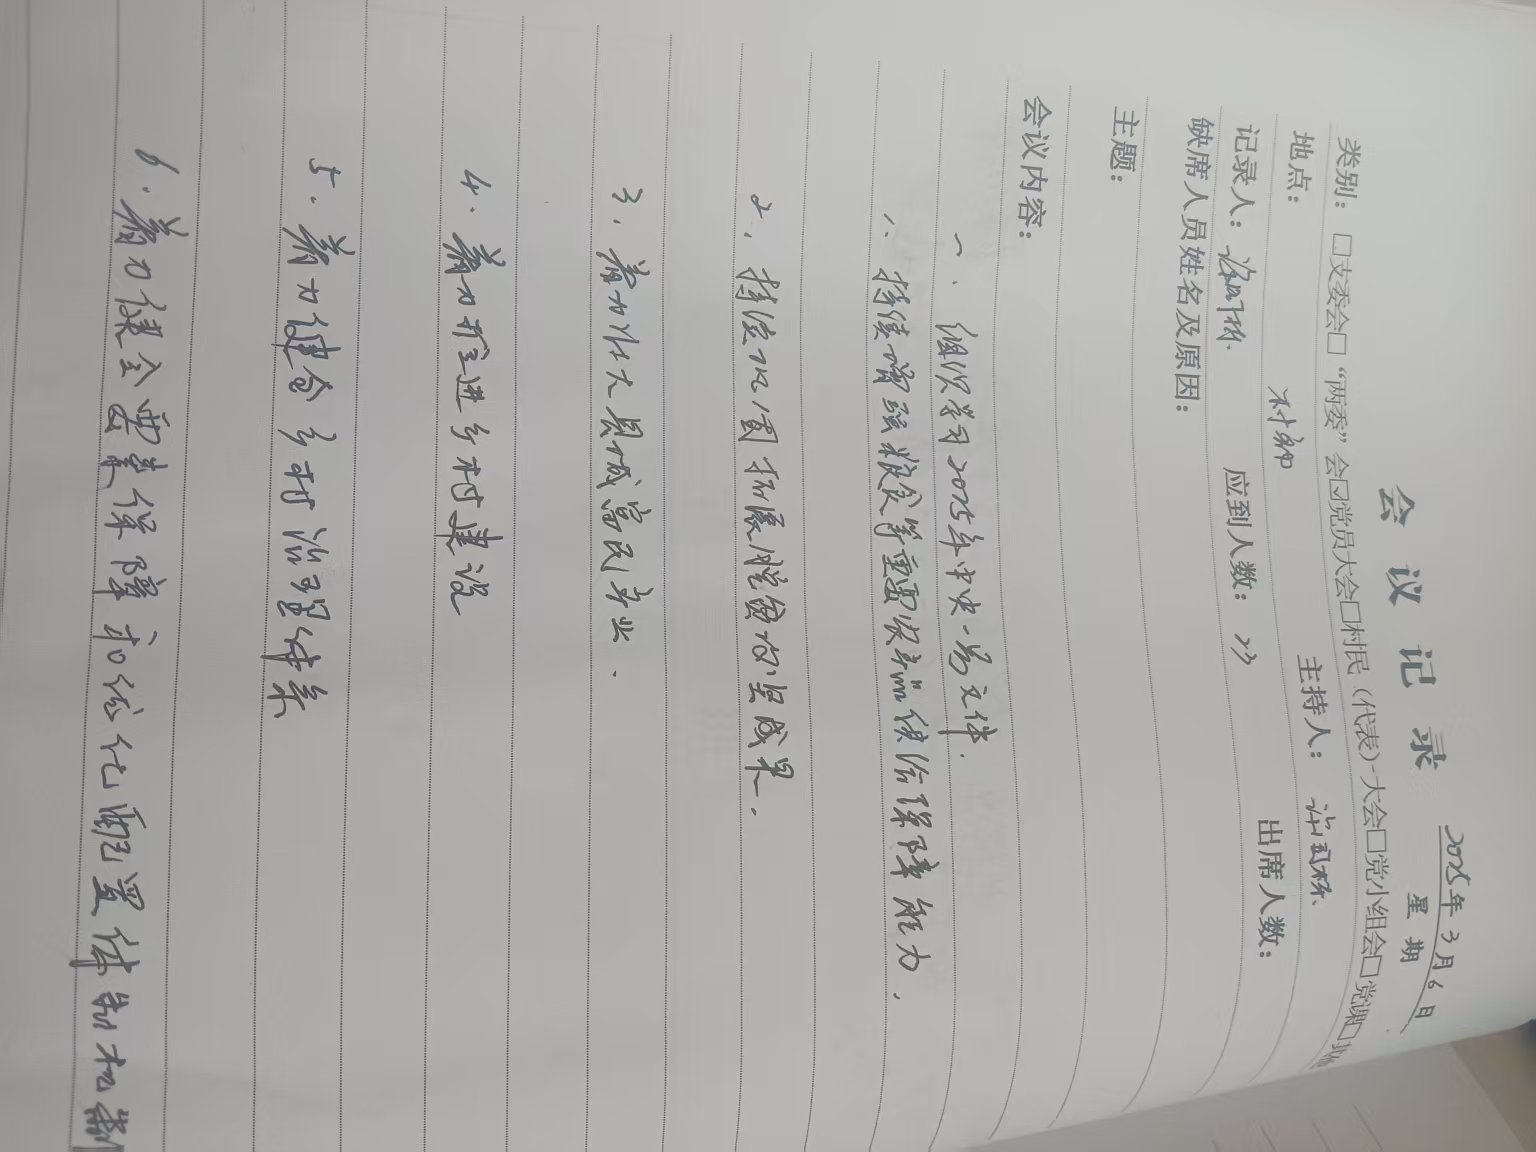 会议记录
2025年3月6日
星期
类别：□支委会□“两委”会☑党员大会□村民（代表）大会□党小组会□党课□其他
地点：村部 主持人：
记录人： 应到人数：23 出席人数：
缺席人员姓名及原因：
主题：
会议内容：
一．组织学习2025年中央一号文件．
1、持续增强粮食等重要农产品供给保障能力．
2，持续巩固拓展脱贫攻坚成果．
3，着力壮大县域富民产业．
4．着力推进乡村建设
5．着力健全乡村治理体系
6．着力健全要素保障和优化配置体制机制